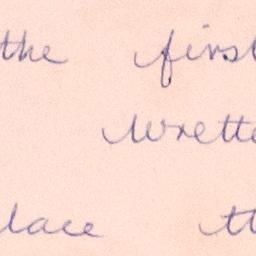 the first
Wrette
lace th